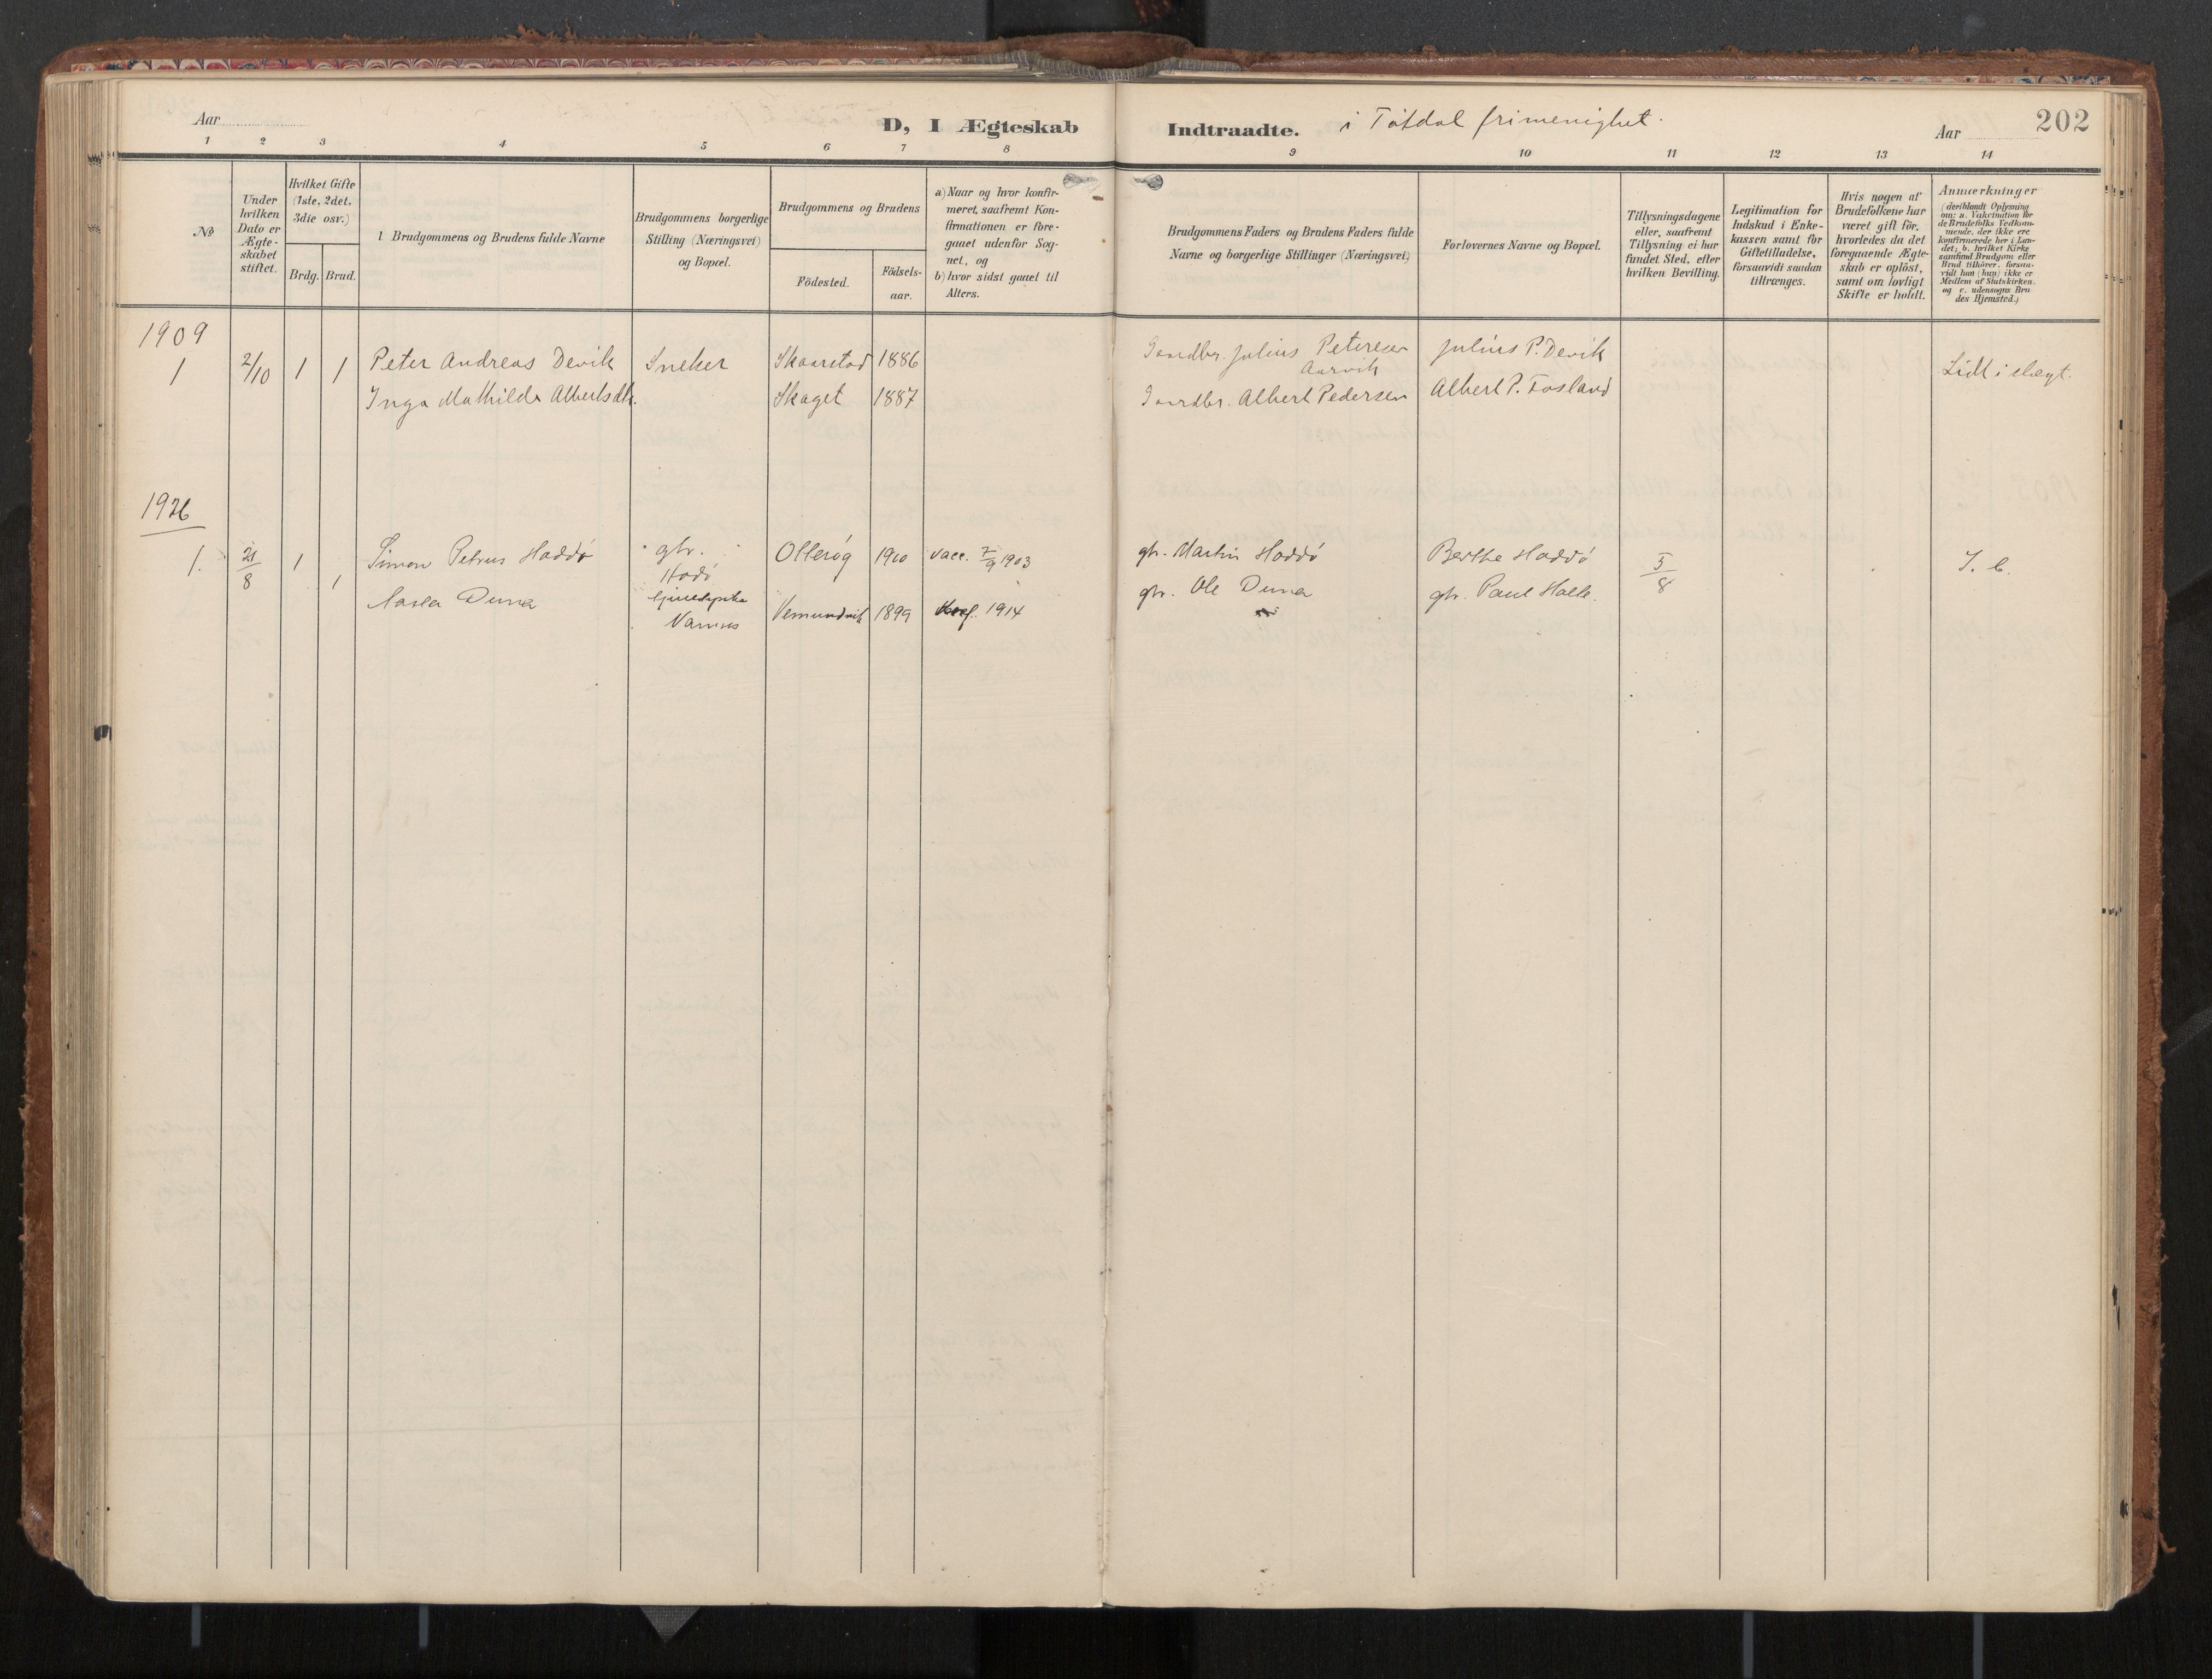 Aar
D, I Ægteskab
Indtraadte.
i Tøtdal frimenighet.
Aar
202
1 2 3 4 5 6 7 8 9 10 11 12 13 14
No
Under hvilken Dato er Ægteskabet stiftet.
Hvilket Gifte
(1ste, 2det, 3die osv.)
Brdg. Brud.
1 Brudgommens og Brudens fulde Navne
Brudgommens borgerlige
Stilling (Næringsvei)
og Bopæl.
Brudgommens og Brudens
Födested.
Födsels-
aar.
a) Naar og hvor konfir-
meret, saafremt Kon-
firmationen er fore-
gaaet udenfor Sog-
net, og
b) hvor sidst gaaet til
Alters.
Brudgommens Faders og Brudens Faders fulde
Navne og borgerlige Stillinger (Næringsvei)
Forlovernes Navne og Bopæl.
Tillysningsdagene
eller, saafremt
Tillysning ei har
fundet Sted, efter
hvilken Bevilling.
Legitimation for
Indskud i Enke-
kassen samt for
Giftetilladelse,
forsaavidt saadan
tiltrænges.
Hvis nogen af
Brudefolkene har
været gift för,
hvorledes da det
foregaaende Ægte-
skab er oplöst,
samt om lovligt
Skifte er holdt.
Anmærkninger
(deriblandt Oplysning
om: a. Vakcination for
de Brudefolks Vedkom-
mende, der ikke ere
konfirmerede her i Lan-
det; b. hvilket Kirke
samfund Brudgom eller
Brud tilhörer, forsaa-
vidt han (hun) ikke er
Medlem af Statskirken,
og c. udensogns Bru
des Hjemsted.)
1909
1 2/10 1 1 Peter Andreas Devik Sneker Skaarstad 1886 Gaardbr. Julius Petersen Julius P. Devik
Aarvik
Lidt i slægt.
Inga Mathilde Albertsdtr. Skaget 1887 Gaardbr. Albert Pedersen Albert P. Fosland
1926
1. 21/8 1 Simon Petrus Haddø gbr. Otterøy 1900 vacc. 7/9 1903 gbr. Martin Haddø Berthe Haddø 5/8
Hodø
1 Duna gbr. Ole Duna gbr. Paul
Vemundvik 1899 Konf. 1914